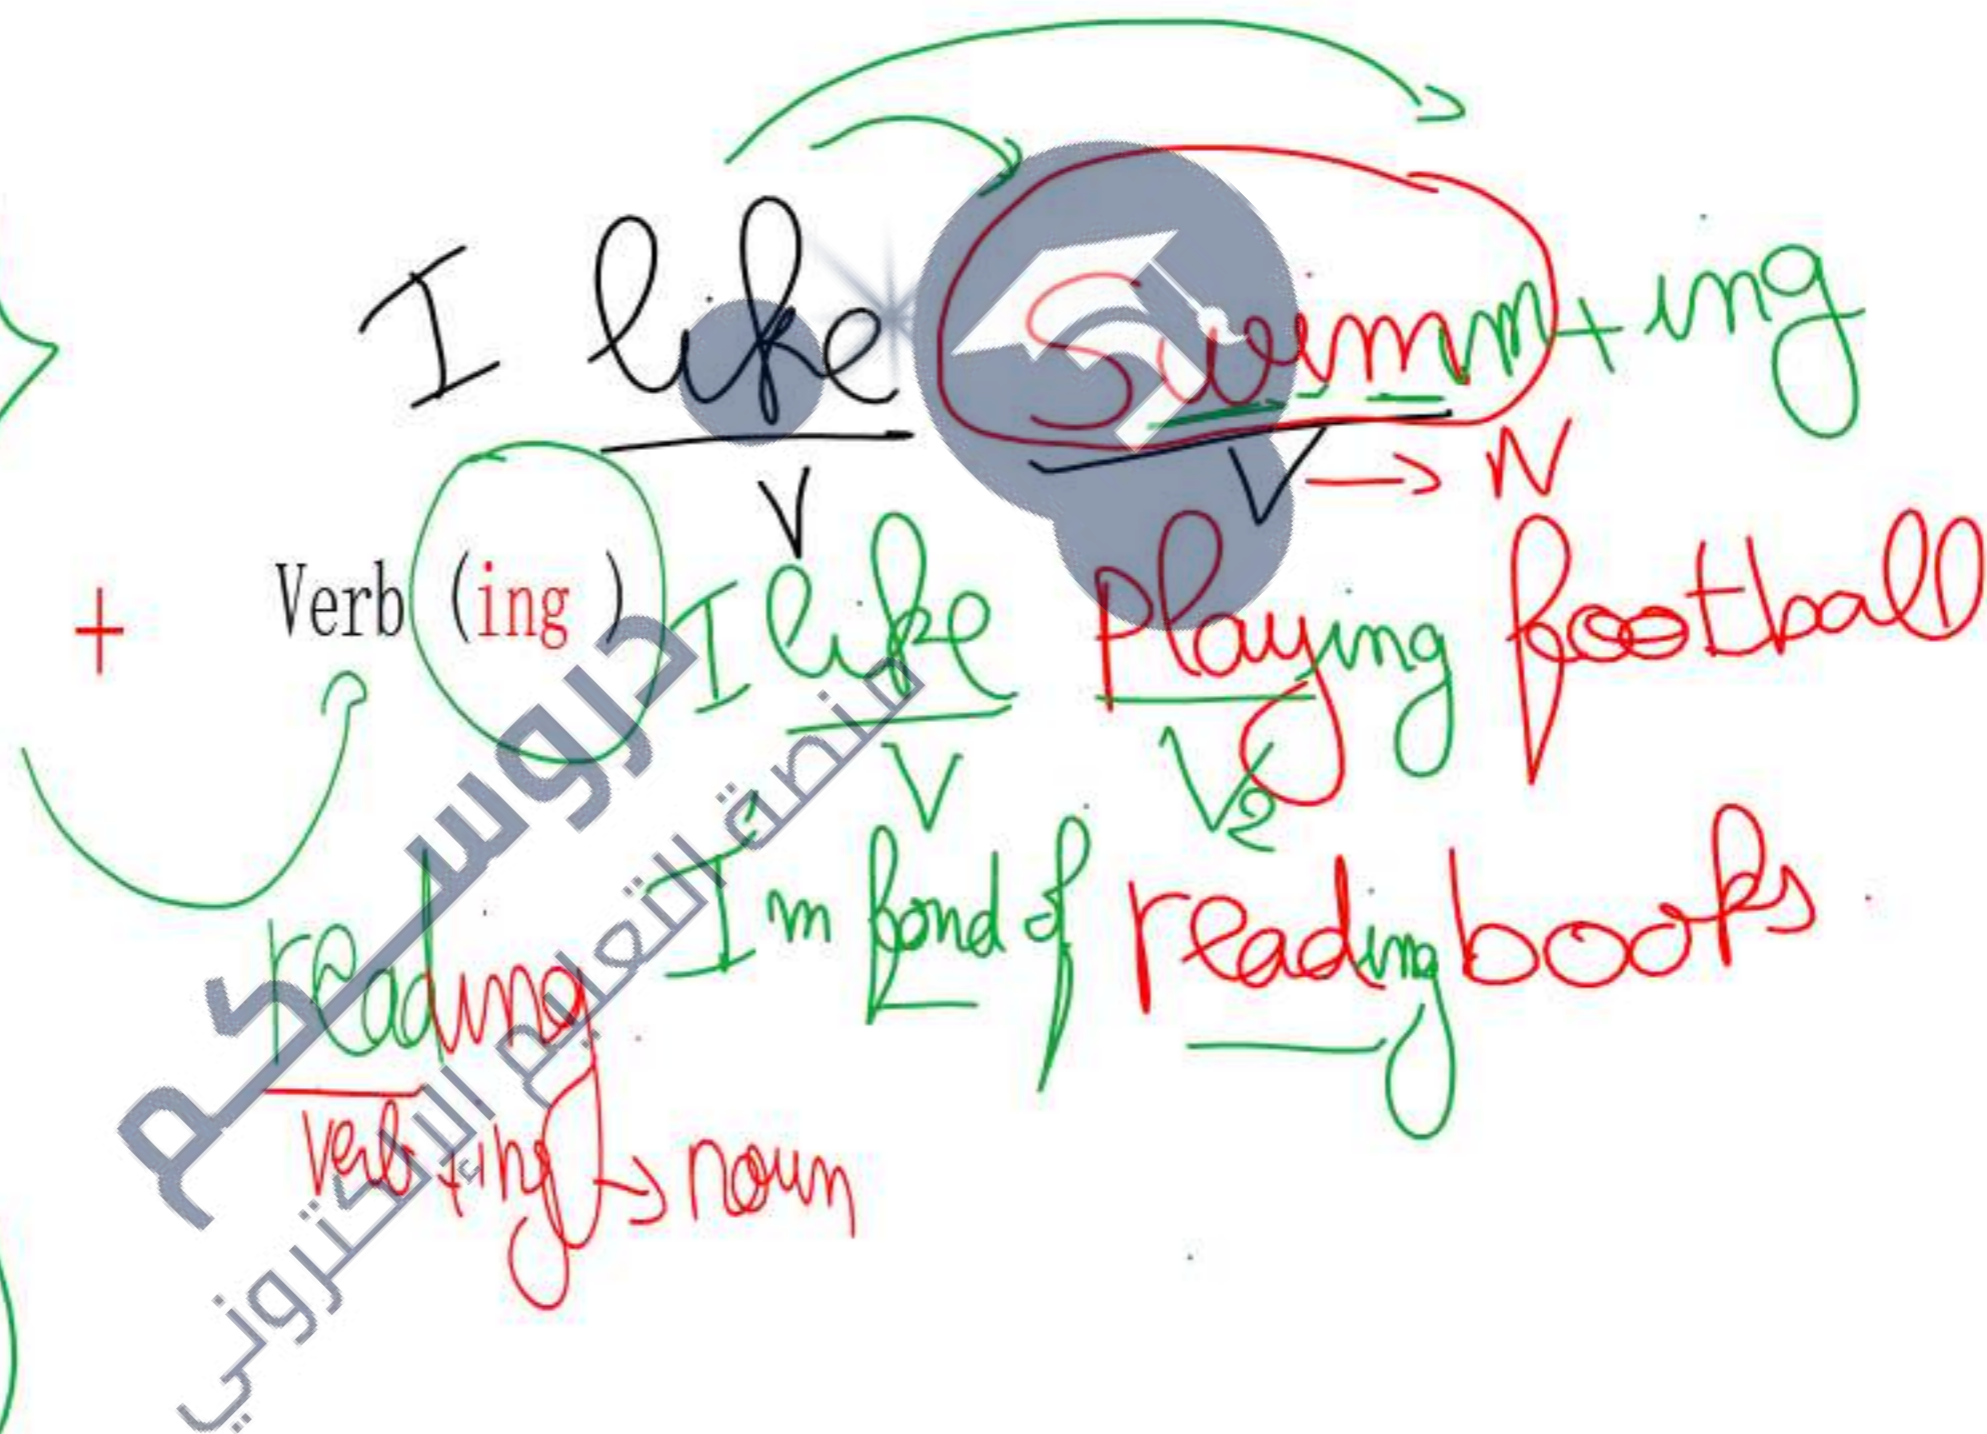 I like Swimm + ing
V V → N
+ Verb (ing) I like Playing football
V V2
I'm fond of reading books
reading
verb + ing → noun
دروسكم
منصة التعليم الإلكتروني